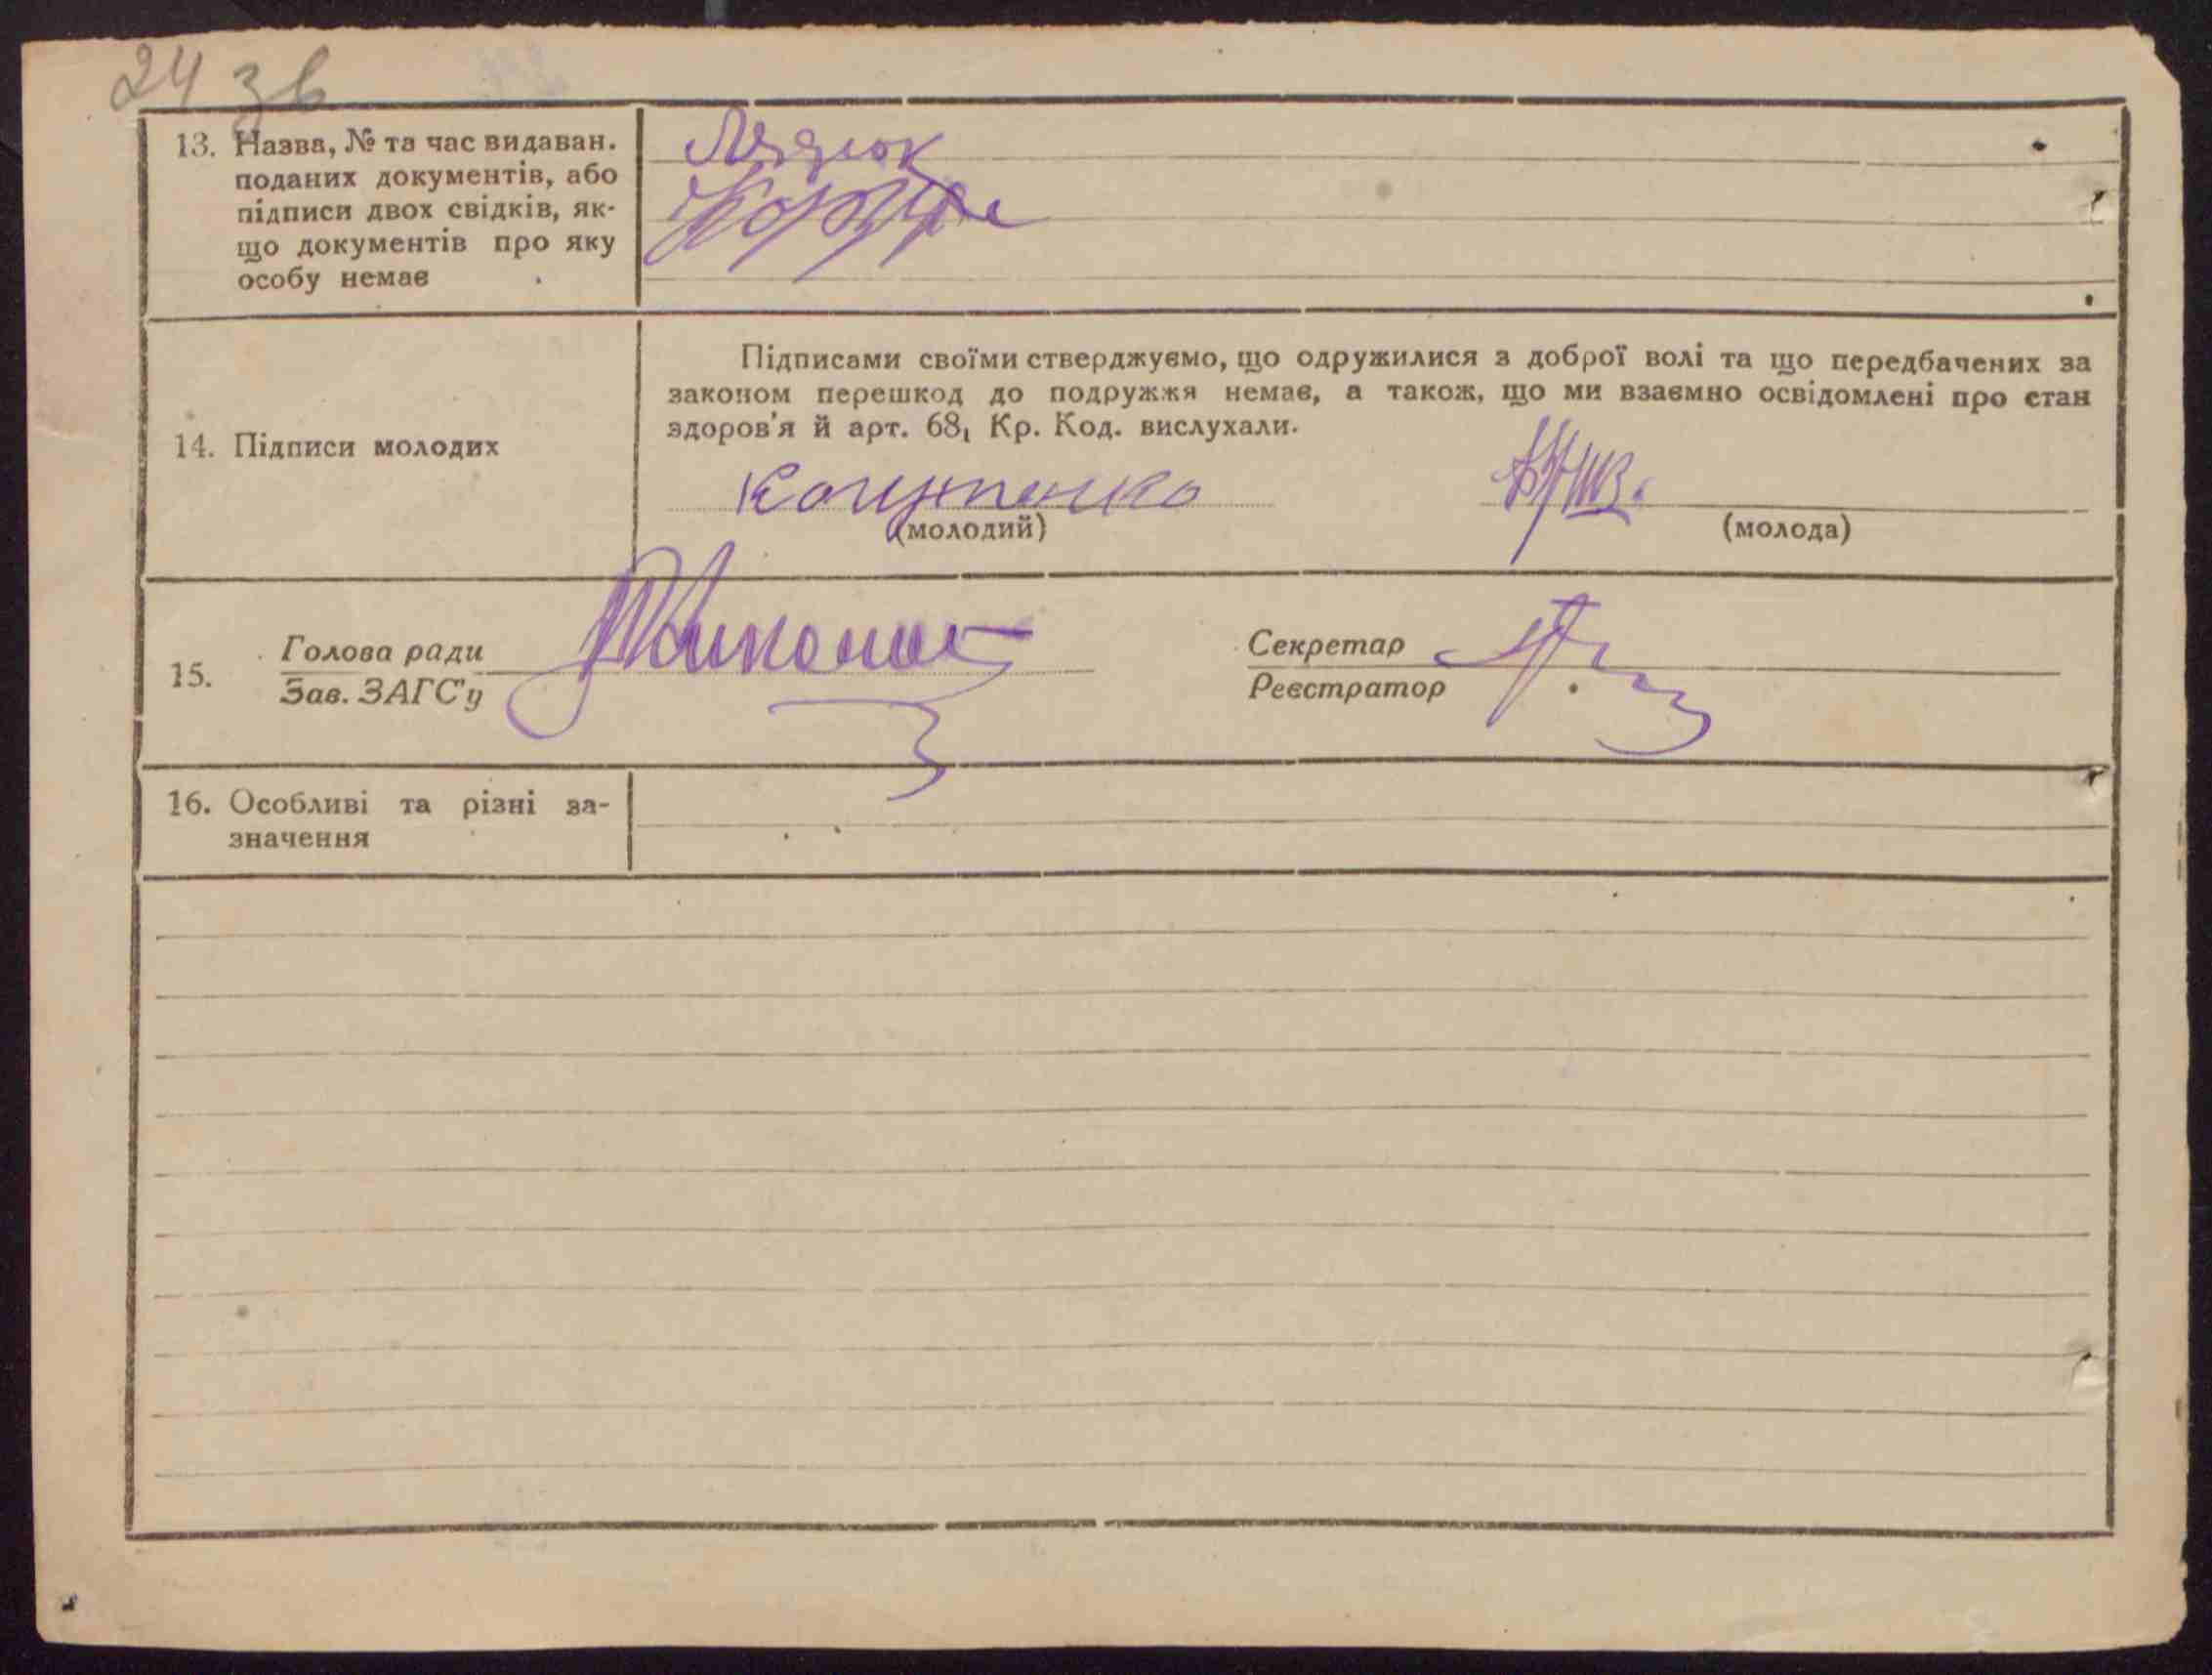 24 зв
13. Назва, № та час видаван.
поданих документів, або
підписи двох свідків, як-
що документів про яку
особу немає
Підписами своїми стверджуємо, що одружилися з доброї волі та що передбачених за
законом перешкод до подружжя немає, а також, що ми взаємно освідомлені про стан
здоров'я й арт. 68₁ Кр. Код. вислухали.
14. Підписи молодих
(молодий)
(молода)
15.
Голова ради
Зав. ЗАГС'у
Секретар
Реєстратор
16. Особливі та різні за-
значення